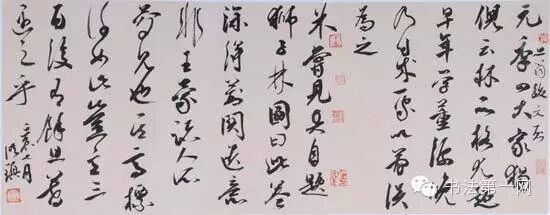 元季四大家獨
倪云林品格尤超
早年學董源晚
乃成一家以簡淡
為之
余嘗見其自題
獅子林圖曰此卷
深得荊關遺意
非王蒙諸人所
夢見也其高標
許如此豈意三
百後有餘旦暮
遇之乎
七月
书法第一网